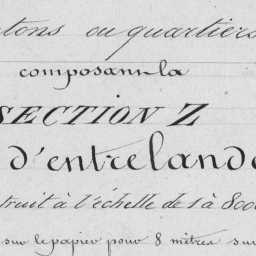 tons ou quartiers
composant la
SECTION Z
d'entrelande
truit à l'échelle de 1 à 8000
sur le papier pour 8 mètres sur